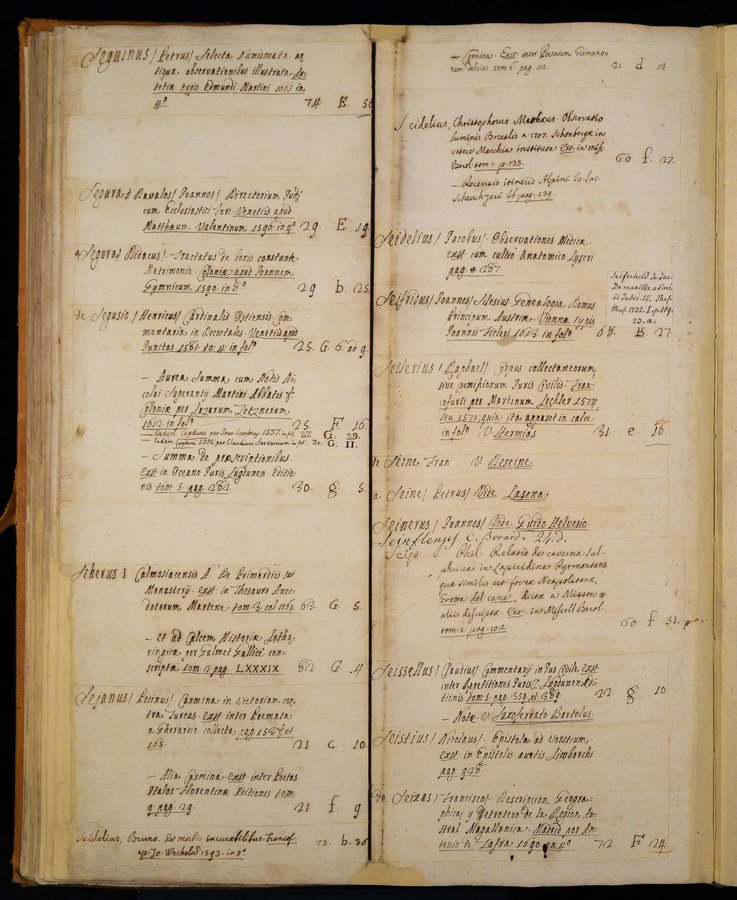 Seguinus / Petrus / Selecta Numismata an
tiqua observationibus illustrata Lu-
tetiæ typis Edmundi Martini 1665 in
4º 74 E. 50
Segura & Davalos / Joannes / Directorium Judi
cum Ecclesiastici fori Venetiis apud
Matthæum Valentinum 1596 in 4º 29 E 19
a Segura / Didacus / Tractatus de bonis constante
Matrimonio Coloniæ apud Joannem
Gymnicum 1590 in 8º 29 b. 25
de Segusio / Henricus / Cardinalis Ostiensis Com-
mentaria in Decretales Venetiis apud
Junctas 1581 to. 4 in folº 25 G. 6 ad 9.
— Aurea Summa cum Notis Ni
colai Superantii Martini Abbatis &
Coloniæ per Lazarum Zetznerum
1612 in folº 25 F 16
— Eadem Lugduni per Joan Cambray 1537 in fol. 27. G. 29.
— Eadem Lugduni per Claudium Servanium in fol. 30. G. 11.
— Summa de præscriptionibus
exst in Oceano Juris Lugdunen. Editio-
nis tom. 5. pag. 282 30. g 5.
Seherus I Calmosiacensis A. De Primordiis sui
Monasterii exst in Thesauro Anec-
dotorum Martene tom. 3. col 1160 63 G 5.
— et ad Calcem Historiæ Lotha
ringicæ per Calmet Gallicè con-
scriptæ tom. 2. pag. LXXXIX 82 G .4
Sejanus / Decinus / Carmina in Victoriam con
tra Turcas exst inter Poemata
a Gherardio collecta pag 158 et
165 21 c. 10.
— Alia Carmina exst inter Poetas
Italos Florentinæ Editionis tom
9 pag. 29. 21 f. 9
Seidelius, Bruno. De morbis incurabilibus. Francof.
ap. Jo. Wechelum 1593. in 8º 13. b. 36
— Carmina Exst inter Poetarum Germano-
rum Delicias tom. 6 pag. 112. 21 d 13.
Seidelius, Christophorus Matthæus Observatio
Luminis Borealis a. 1707. Schonbergæ in
vetere Marchia instituta Ext. in misc.
Berol tom. 1. p. 133. 60 f. 27.
— Recensio itineris Alpini Jo. Jac.
Scheuchzeri Ib pag. 239
Seidelius / Jacobus / Observationes Medicæ
exst cum cultro Anatomico Lyseri
pag 267
Seiferheld Jo. Jac.
De maxilla asini
ad Judic. 15. Thes.
Thes. 1732. I. p. 519.
23. a.
Seifridus / Joannes / Silesius Genealogia Domus
Principum Austriæ Viennæ typis
Joannis Fideleri 1613 in folº 68 B 27
Seilerius / Raphael / Opus collectaneorum
sive remissionum Juris Civilis Fran-
cofurti per Martinum Lechler 1574,
seu 1570, quia ita apparet in calce
in folº V. Hermias 31 e 16
de Seine Fran V. Deseine
a Seine / Petrus / Vide Lasena
Seinerus / Joannes / Vide Guido Helvesio
C. Berard. 24. d.
Seip / Phil. Relatio de caverna sul-
phurea in Lapicidina Pyrmontana
quæ similis est foveæ Neapolitanæ
Grotta del cane dictæ a Misson &
aliis descriptæ. Ext. in Miscell Berol
tom. 5. pag. 102. 60 f 31.
Seissellus / Claudius / Commentarii in Jus Civile exst
inter Repetitiones Juris C. Lugdunen. Edi-
tionis tom. 5. pag. 359. et 389 22 g 10.
— Notæ V. Saxoferrato Bartolus
Seistius / Nicolaus / Epistola ad Vorstium,
exst in Epistolis auctis Limborchi
pag. 926
de Seixas / Francisco / Descripcion Geogra-
phica, y Derrotero de la Region Au-
stral Magallanica Madrid por An-
tonio de Zafra 1690 en 4º 72 F 24